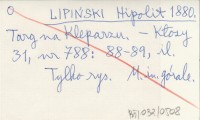 LIPIŃSKI Hipolit 1880.
Targ na Kleparzu. – Kłosy
31, nr 788: 88-89, il.
Tylko rys. M. in. górale.
BJ/032/0508